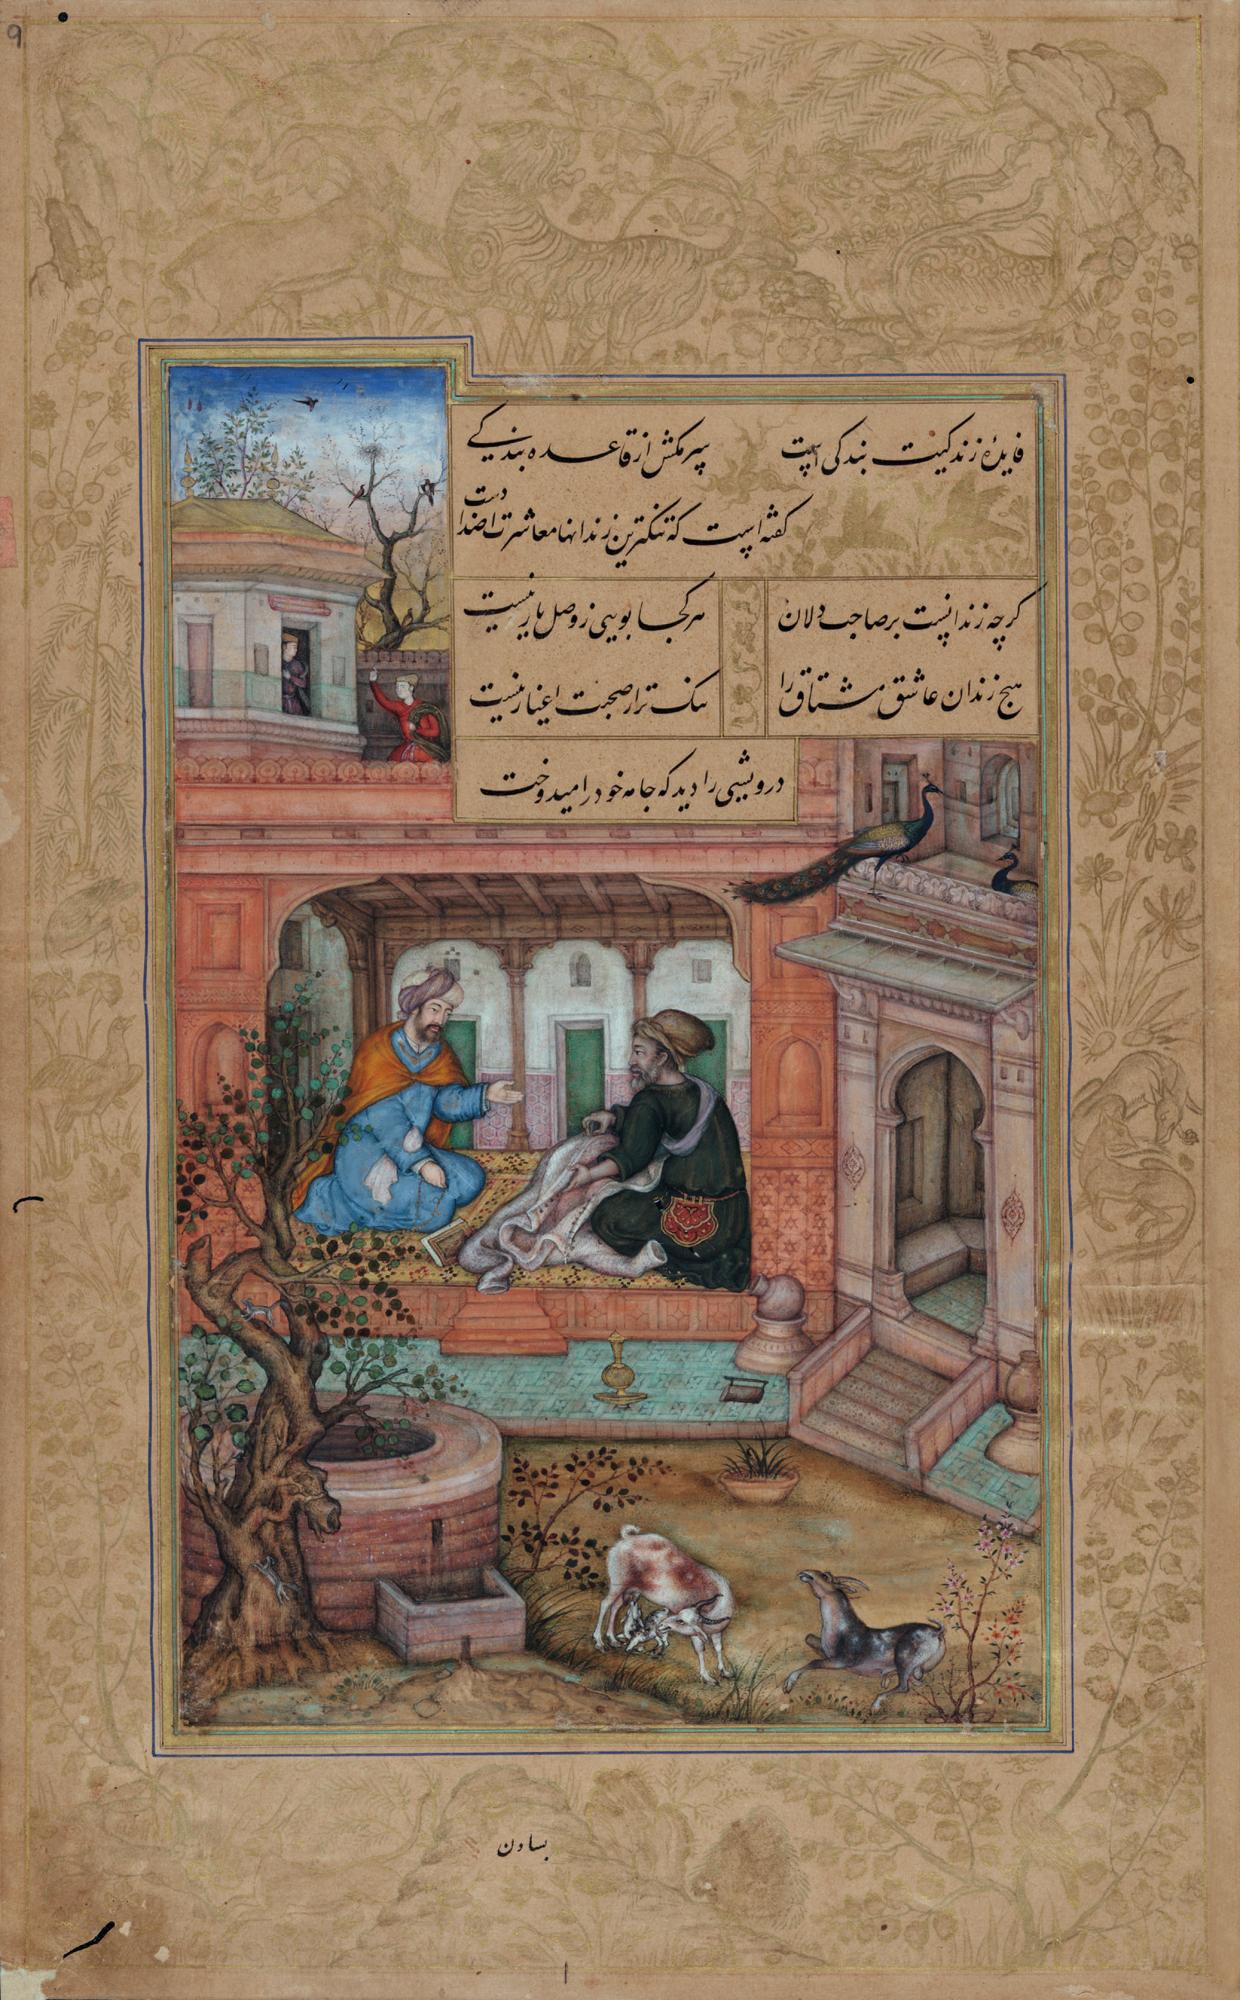 فایدهٔ زندگیت بندگی است
سر مکش از قاعده بندگی
گفته است که تنگترین زندانها معاشرت اضداد است
گرچه زندانست بر صاحب دلان
هر کجا بویی ز وصل یار نیست
هیچ زندان عاشق مشتاق را
تنگ تر از صحبت اغیار نیست
درویشی را دید که جامه خود را میدوخت
بساون
9